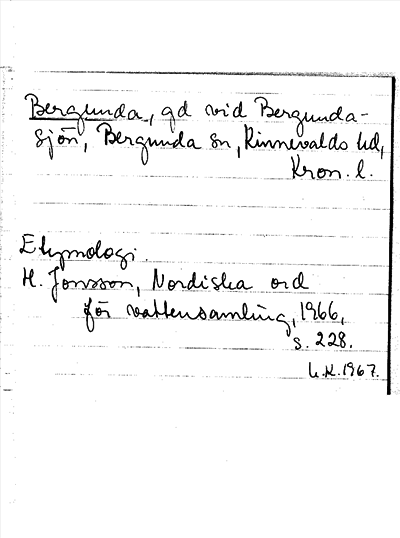 Bergunda, gd vid Bergunda-
sjön, Bergunda sn, Kinnevalds hd,
Kron. l.
Etymologi.
H. Jonsson, Nordiska ord
för vattensamling, 1966,
s. 228.
L.H. 1967.